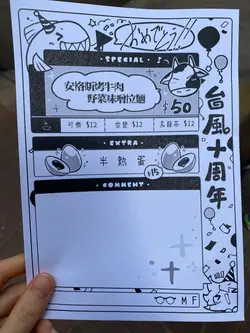 おめでとう!
SPECIAL
安格斯烤牛肉
野菜味噌拉麵
$50
可樂 $12
雪碧 $12
烏龍茶 $12
EXTRA
半熟蛋
$15
COMMENT
台風十周年
M F